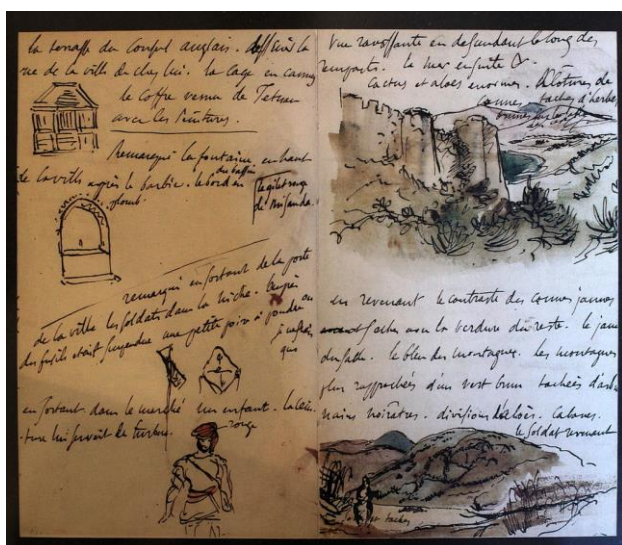 la terrasse du Consul anglais. dessiné la
vue de la ville de chez lui. la cage en cannes
le coffre venu de Tetuan
avec les peintures.
Remarqué la fontaine, en haut
du bassin
de la ville après le barbier. le bord en
plomb.
le gilet rouge
remarqué en sortant de la porte
de la ville les soldats dans la niche. Auprès
des fusils était suspendue une petite poire à poudre
en sortant dans le marché un enfant. la cein
-ture lui servait de turban.
rouge
Vue ravissante en descendant le long des
remparts. la mer ensuite
Cactus et aloès énormes. Clôtures de
cannes. taches d'herbes
brunes sur le
en revenant le contraste des cannes jaunes
sèches avec la verdure du reste. le jaune
du sable. le bleu des montagnes. les montagnes
plus rapprochées d'un vert brun tachées d'arbres
nains noirâtres. d'aloès. Cabanes.
le soldat revenant
taches